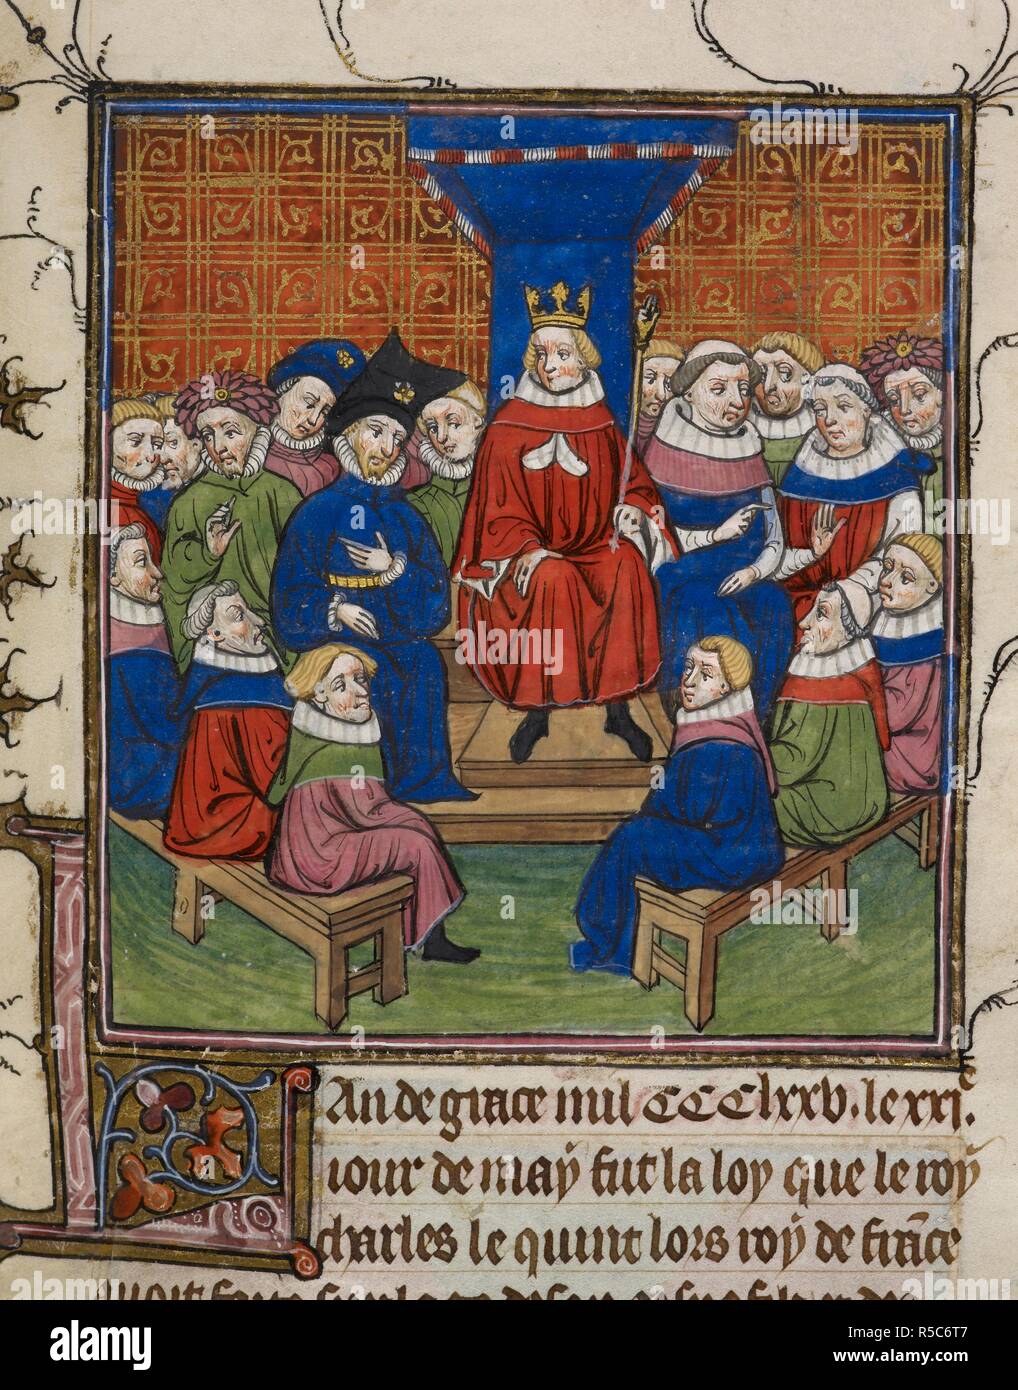 An de grace mil CCC lxxv. le xxi.e
iour de may fut la loy que le roy
charles le quint lors roy de frāce
alamy
Image ID: R5C6T7
www.alamy.com